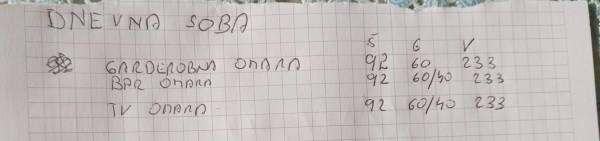 DNEVNA SOBA
Š G V
GARDEROBNA OMARA 92 60 233
BAR OMARA 92 60/40 233
TV OMARA 92 60/40 233